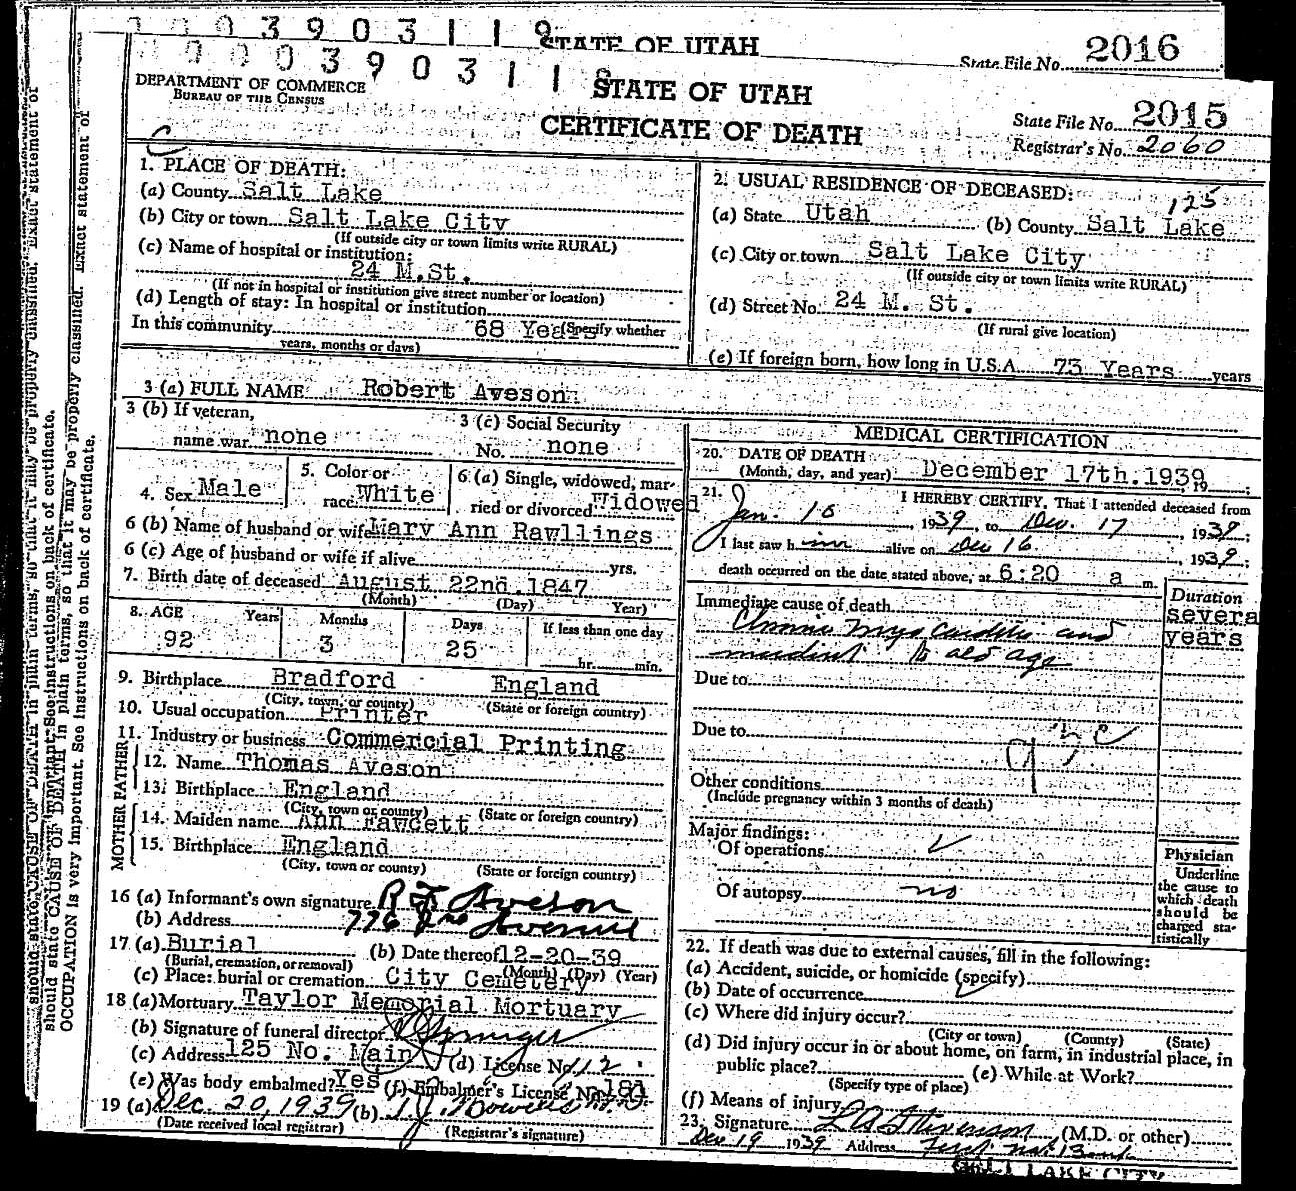 0 3 9 0 3 1 1 9
STATE OF UTAH
State File No. 2016
0 0 0 3 9 0 3 1 1
DEPARTMENT OF COMMERCE
BUREAU OF THE CENSUS
STATE OF UTAH
CERTIFICATE OF DEATH
State File No. 2015
Registrar's No. 2060
C
1. PLACE OF DEATH:
(a) County Salt Lake
(b) City or town Salt Lake City
(If outside city or town limits write RURAL)
(c) Name of hospital or institution:
24 M. St.
(If not in hospital or institution give street number or location)
(d) Length of stay: In hospital or institution
In this community 68 Years (Specify whether
years, months or days)
2. USUAL RESIDENCE OF DECEASED:
125
(a) State Utah (b) County Salt Lake
(c) City or town Salt Lake City
(If outside city or town limits write RURAL)
(d) Street No. 24 M. St.
(If rural give location)
(e) If foreign born, how long in U.S.A. 73 Years years
3 (a) FULL NAME Robert Aveson
3 (b) If veteran,
name war none
3 (c) Social Security
No. none
4. Sex Male
5. Color or
race White
6 (a) Single, widowed, mar-
ried or divorced Widowed
6 (b) Name of husband or wife Mary Ann Rawllings
6 (c) Age of husband or wife if alive yrs.
7. Birth date of deceased August 22nd. 1847
(Month) (Day) Year)
8. AGE Years Months Days If less than one day
92 3 25 hr. min.
9. Birthplace Bradford England
(City, town, or county) (State or foreign country)
10. Usual occupation Printer
11. Industry or business Commercial Printing
FATHER
12. Name Thomas Aveson
13. Birthplace England
(City, town or county) (State or foreign country)
MOTHER
14. Maiden name Ann Fawcett
15. Birthplace England
(City, town or county) (State or foreign country)
16 (a) Informant's own signature R F Aveson
(b) Address 776 2nd Avenue
17 (a) Burial (b) Date thereof 12-20-39
(Burial, cremation, or removal) (Month) (Day) (Year)
(c) Place: burial or cremation City Cemetery
18 (a) Mortuary Taylor Memorial Mortuary
(b) Signature of funeral director
(c) Address 125 No. Main (d) License No. 112
(e) Was body embalmed? Yes (f) Embalmer's License No. 181
19 (a) Dec. 20, 1939 (b)
(Date received local registrar) (Registrar's signature)
MEDICAL CERTIFICATION
20. DATE OF DEATH
(Month, day, and year) December 17th. 1939, 19 ;
21. I HEREBY CERTIFY, That I attended deceased from
Jan. 16, 1939, to Dec. 17, 1939;
I last saw him alive on Dec 16, 1939;
death occurred on the date stated above, at 6:20 a m.
Immediate cause of death
Chronic Myocarditis and
incident to old age
Duration
severa
years
Due to
Due to
Other conditions
(Include pregnancy within 3 months of death)
Major findings:
Of operations
Of autopsy no
Physician
Underline
the cause to
which death
should be
charged sta-
tistically
22. If death was due to external causes, fill in the following:
(a) Accident, suicide, or homicide (specify)
(b) Date of occurrence
(c) Where did injury occur?
(City or town) (County) (State)
(d) Did injury occur in or about home, on farm, in industrial place, in
public place? (e) While at Work?
(Specify type of place)
(f) Means of injury
23. Signature L A Stevenson (M.D. or other)
Dec 19 1939 Address First Nat. Bank
SALT LAKE CITY
should state CAUSE OF DEATH in plain terms, so that it may be properly classified. Exact statement of
OCCUPATION is very important. See instructions on back of certificate.